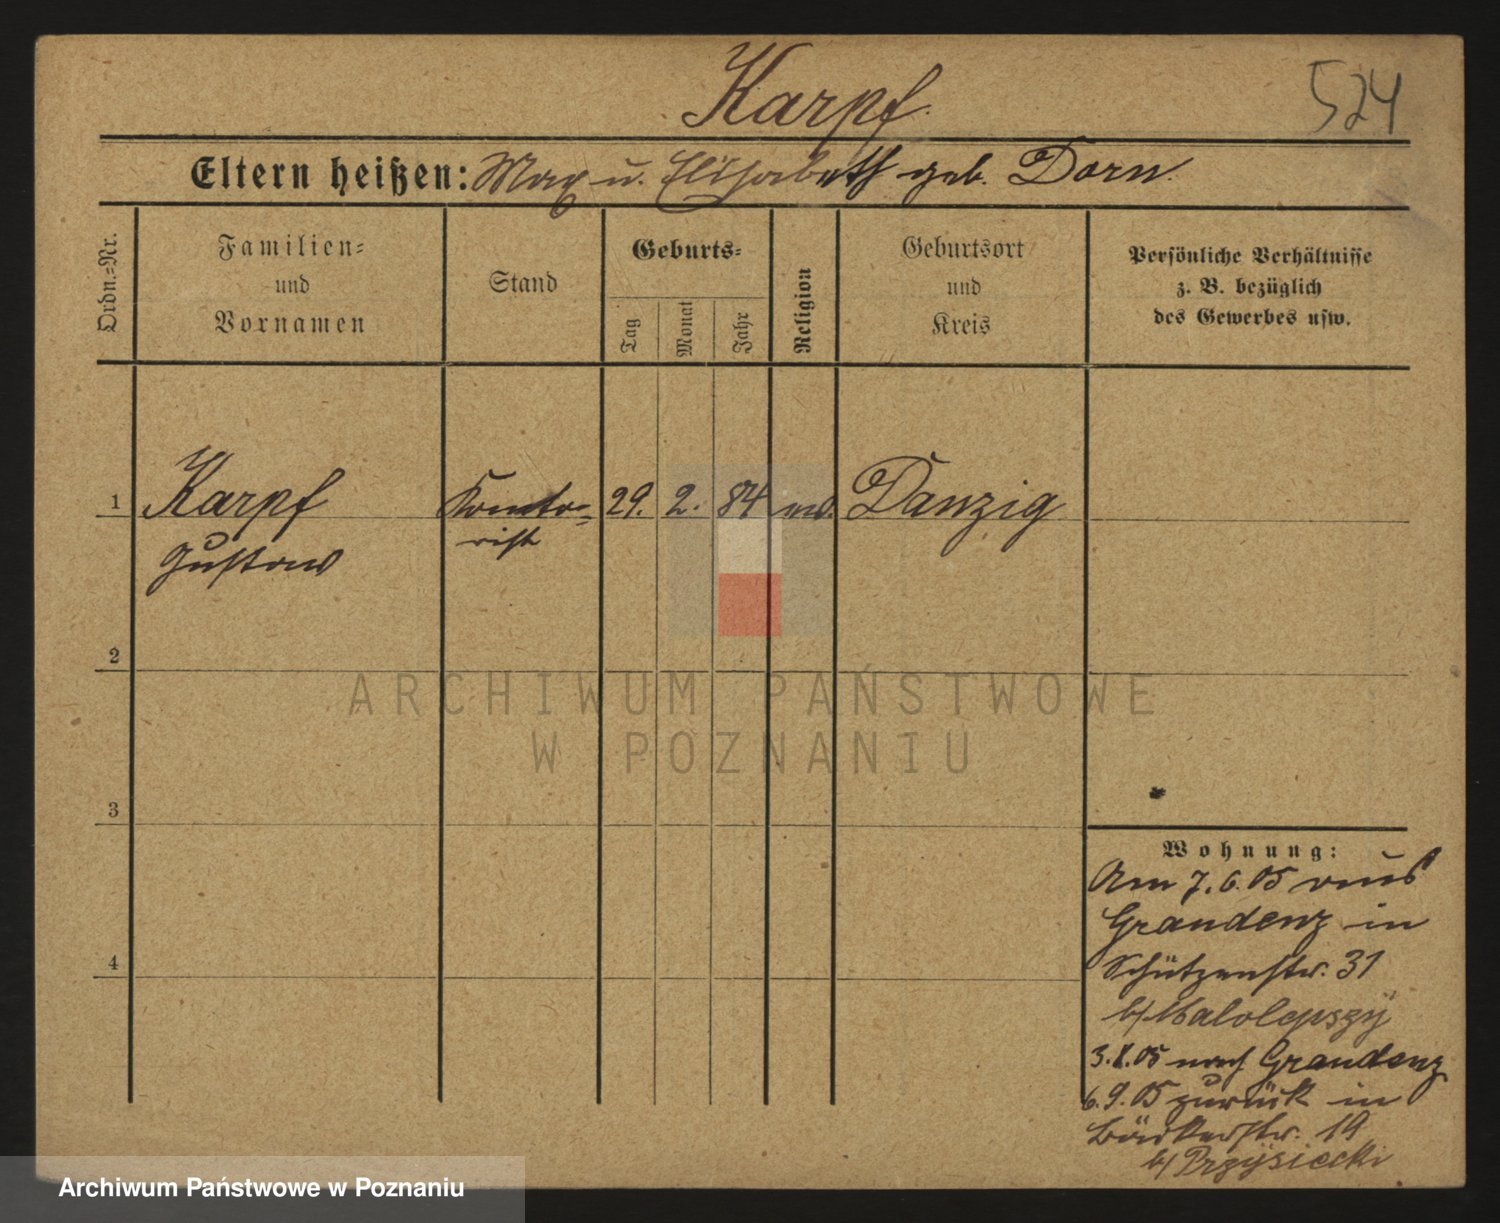 Karpf
524
Eltern heißen: Max u. Elisabeth geb. Dorn
Ordn.-Nr.
Familien-
und
Vornamen
Stand
Geburts-
Tag
Monat
Jahr
Religion
Geburtsort
und
Kreis
Persönliche Verhältnisse
z. B. bezüglich
des Gewerbes usw.
1 Karpf Kontor- 29. 2. 84 Danzig
Gustav rist
2
3
4
Wohnung:
Am 7.6.05 aus
Graudenz in
Schützenstr. 31
b/ Malolepszy
3. .05 nach Graudenz
6.9.05 zurück in
Bäckerstr. 19
b/ Przysiecki
ARCHIWUM PAŃSTWOWE
W POZNANIU
Archiwum Państwowe w Poznaniu